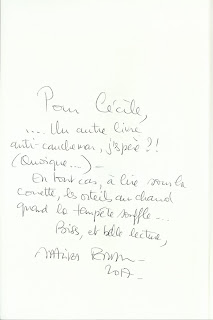 Pour Cécile,
.... Un autre livre
anti-cauchemar, j'espère ?!
(Quoique...) –
En tout cas, à lire sous la
couette, les orteils au chaud
quand la tempête souffle –...
Bises, et belle lecture,
2017 –